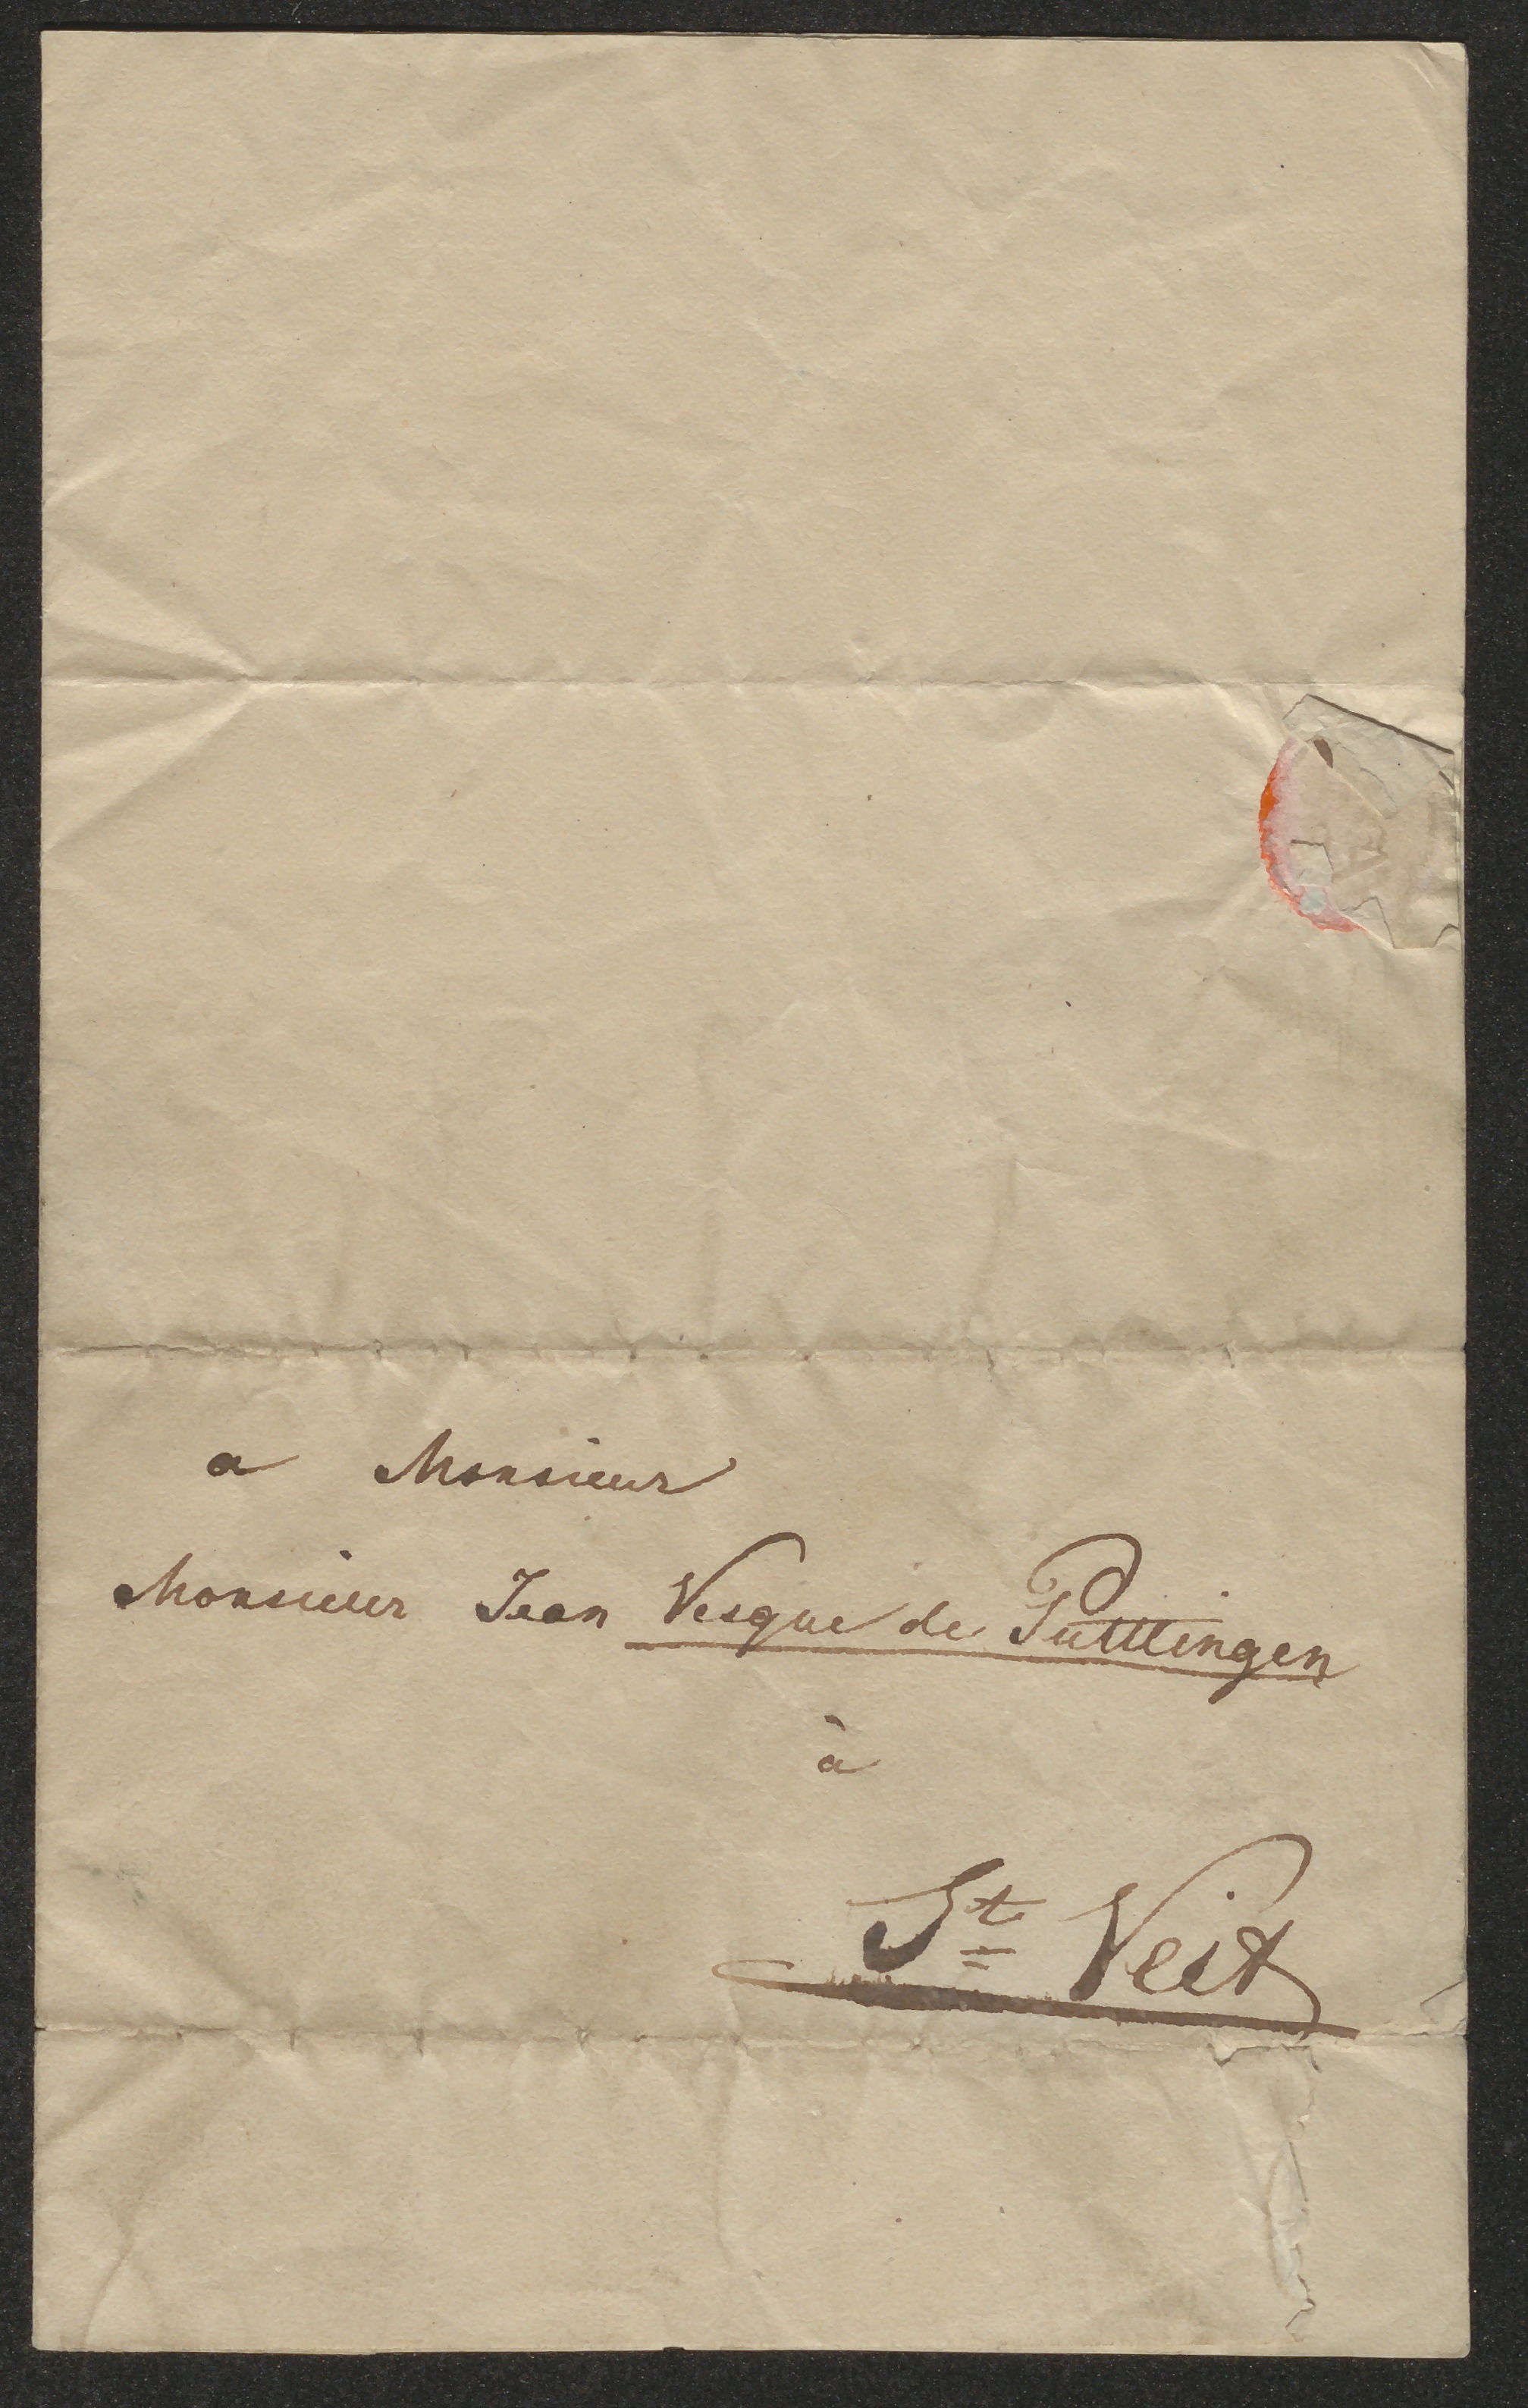 a Monsieur
Monsieur Jean Vesque de Puttlingen
à
St Veit